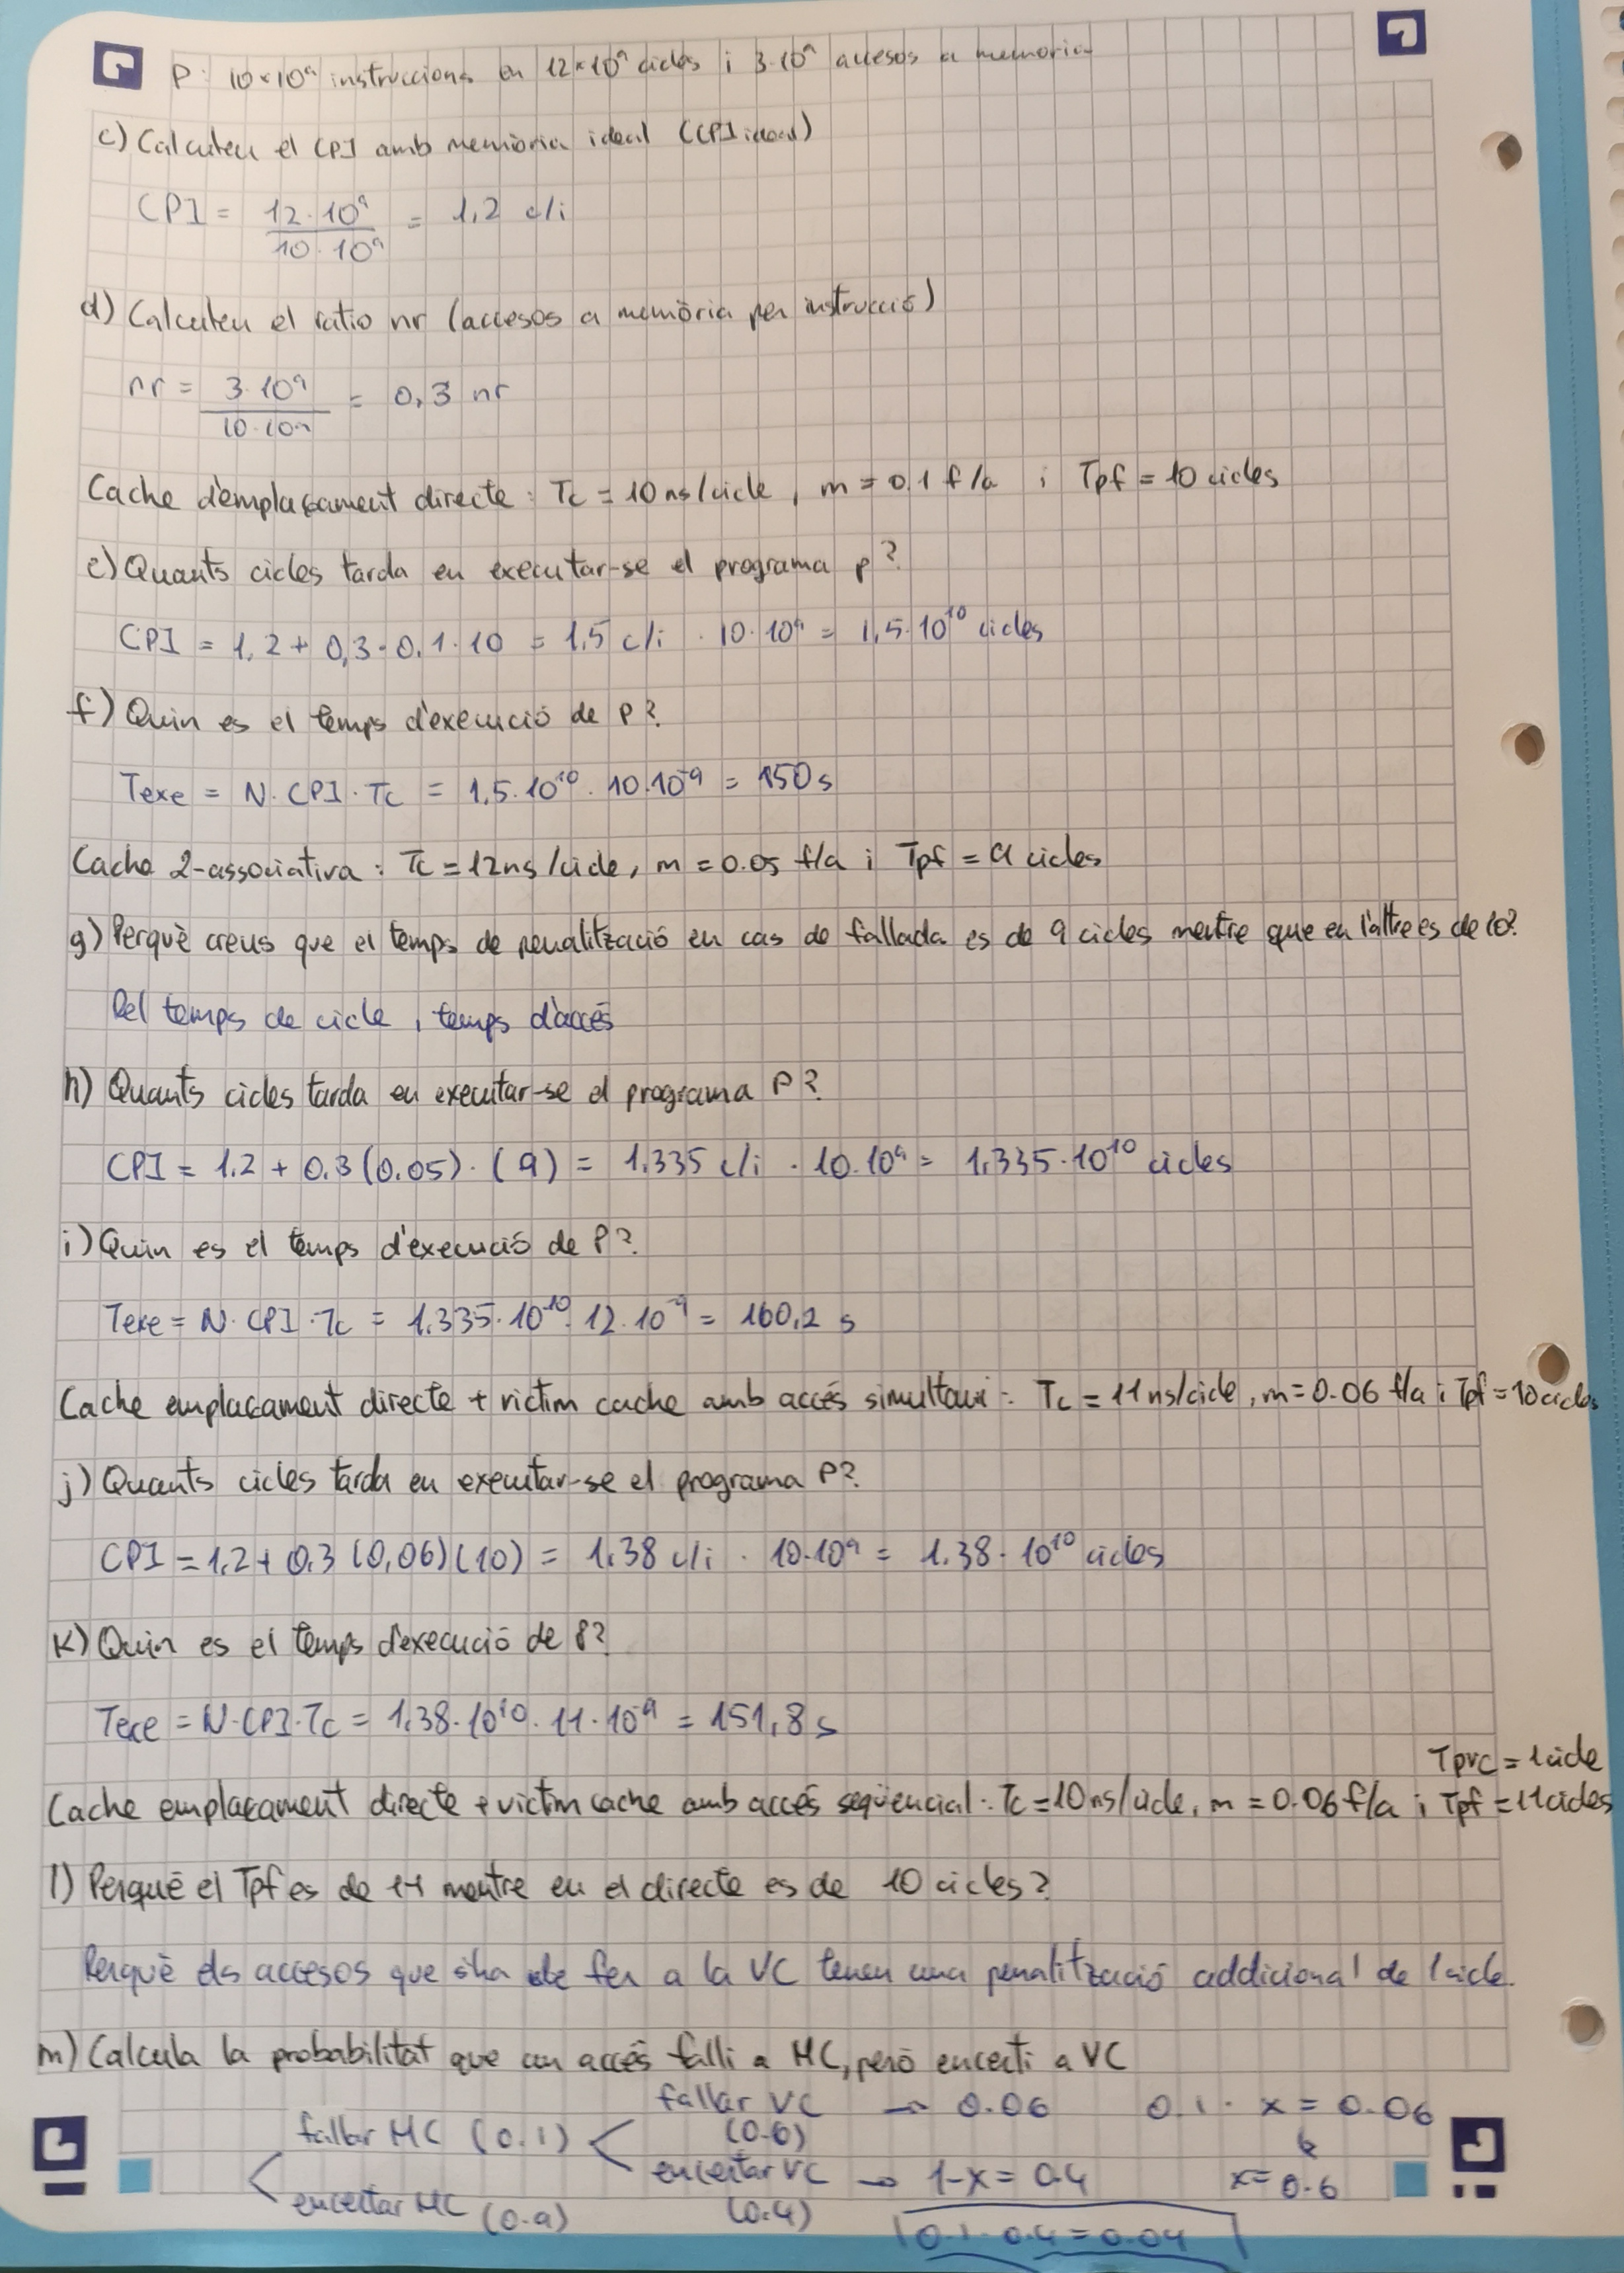 P: 10×10⁹ instruccions en 12×10⁹ cicles i 3·10⁹ accesos a memoria
c) Calculeu el CPI amb memòria ideal (CPI ideal)
CPI = 12·10⁹ / 10·10⁹ = 1,2 c/i
d) Calculeu el ratio nr (accesos a memòria per instrucció)
nr = 3·10⁹ / 10·10⁹ = 0,3 nr
Cache d'emplaçament directe: Tc = 10 ns/cicle, m = 0,1 f/a i Tpf = 10 cicles
e) Quants cicles tarda en executar-se el programa P?
CPI = 1,2 + 0,3·0,1·10 = 1,5 c/i · 10·10⁹ = 1,5·10¹⁰ cicles
f) Quin es el temps d'execució de P?
Texe = N·CPI·Tc = 1,5·10¹⁰ · 10·10⁻⁹ = 150 s
Cache 2-associativa: Tc = 12ns/cicle, m = 0.05 f/a i Tpf = 9 cicles
g) Perquè creus que el temps de penalització en cas de fallada es de 9 cicles mentre que en l'altre es de 10?
Pel temps de cicle, temps d'accés
h) Quants cicles tarda en executar-se el programa P?
CPI = 1.2 + 0.3(0.05)·(9) = 1.335 c/i · 10·10⁹ = 1.335·10¹⁰ cicles
i) Quin es el temps d'execució de P?
Texe = N·CPI·Tc = 1.335·10¹⁰ · 12·10⁻⁹ = 160,2 s
Cache emplaçament directe + victim cache amb accés simultani: Tc = 11ns/cicle, m = 0.06 f/a i Tpf = 10 cicles
j) Quants cicles tarda en executar-se el programa P?
CPI = 1,2 + 0,3 (0,06)(10) = 1,38 c/i · 10·10⁹ = 1.38·10¹⁰ cicles
k) Quin es el temps d'execució de P?
Texe = N·CPI·Tc = 1,38·10¹⁰ · 11·10⁻⁹ = 151,8 s
Tpvc = 1 cicle
Cache emplaçament directe + victim cache amb accés seqüencial: Tc = 10ns/cicle, m = 0.06 f/a i Tpf = 11 cicles
l) Perquè el Tpf es de 11 mentre en el directe es de 10 cicles?
Perquè els accesos que s'ha de fer a la VC tenen una penalització addicional de 1 cicle.
m) Calcula la probabilitat que un accés falli a MC, però encerti a VC
fallar VC → 0.06 0.1 · x = 0.06
fallar MC (0.1) < (0.6)
encertar VC → 1-x = 0.4 x = 0.6
encertar MC (0.9) (0.4)
0.1 · 0.4 = 0.04